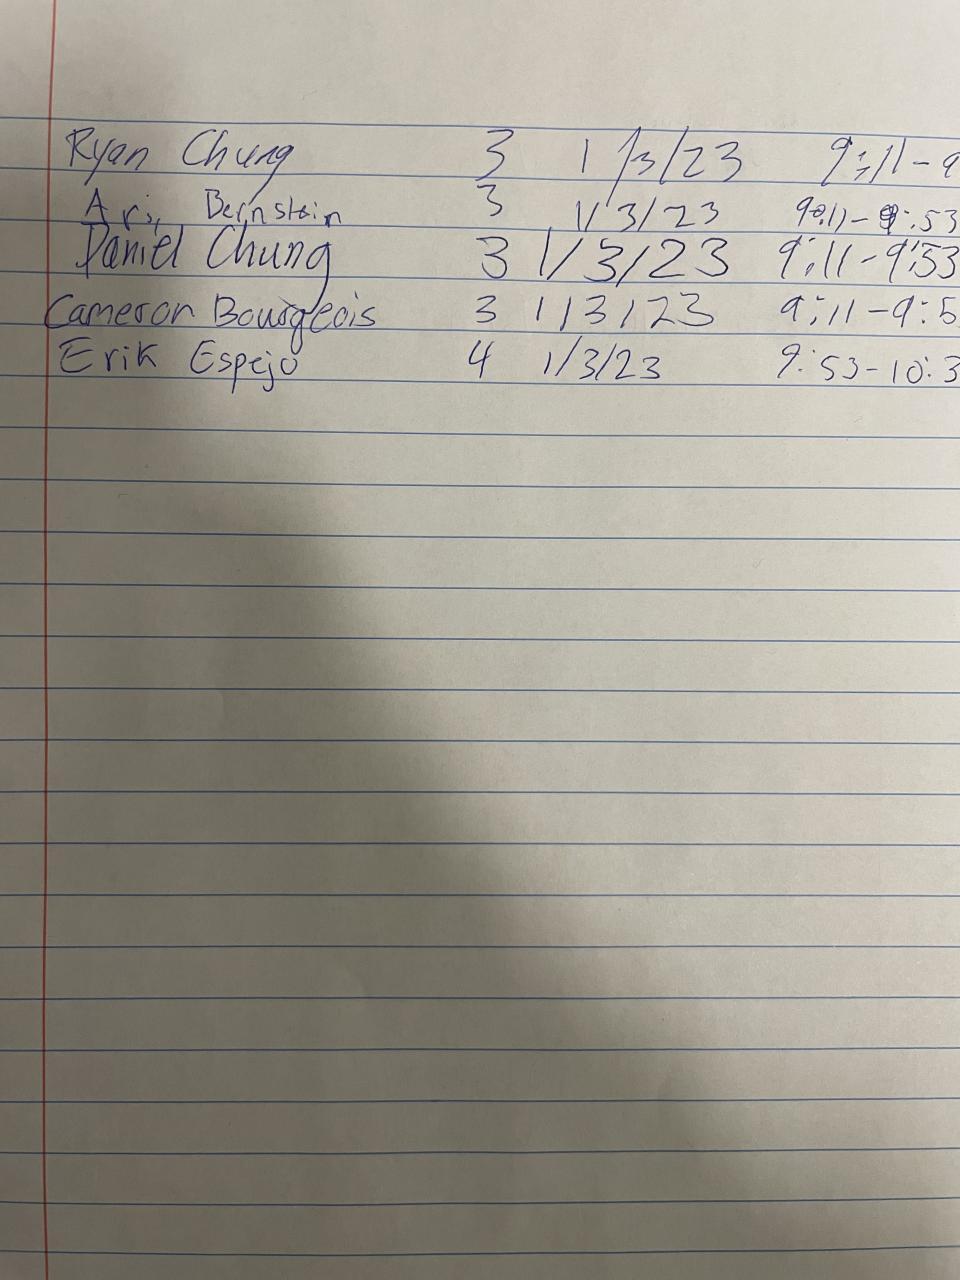 Ryan Chung 3 1/3/23 9:11-9
Ari Bernstein 3 1/3/23 9:11-9:53
Daniel Chung 3 1/3/23 9:11-9:53
Cameron Bourgeois 3 1/3/23 9:11-9:5
Erik Espejo 4 1/3/23 9:53-10:3